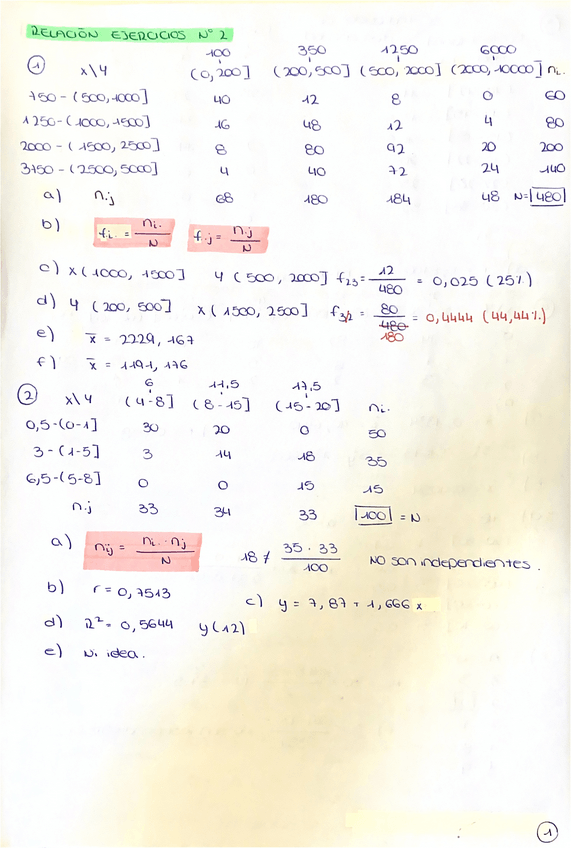 RELACIÓN EJERCICIOS Nº 2
100 350 1250 6000
1 x\y (0,200] (200,500] (500,2000] (2000,10000] ni.
750-(500,1000] 40 12 8 0 60
1250-(1000,1500] 16 48 12 4 80
2000-(1500,2500] 8 80 92 20 200
3750-(2500,5000] 4 40 72 24 140
a) n.j 68 180 184 48 N=480
b) fi. = ni./N f.j = n.j/N
c) x(1000,1500] y(500,2000] f23 = 12/480 = 0,025 (25%)
d) y (200,500] x(1500,2500] f3/2 = 80/480 180 = 0,4444 (44,44%)
e) x̄ = 2229,167
f) x̄ = 1191,176
6 11,5 17,5
2 x\y (4-8] (8-15] (15-20] ni.
0,5-(0-1] 30 20 0 50
3-(1-5] 3 14 18 35
6,5-(5-8] 0 0 15 15
n.j 33 34 33 100 = N
a) nij = ni. · n.j/N 18 ≠ 35·33/100 NO son independientes.
b) r = 0,7513
c) y = 7,87 + 1,666 x
d) R² = 0,5644 y(12)
e) Ni idea.
1